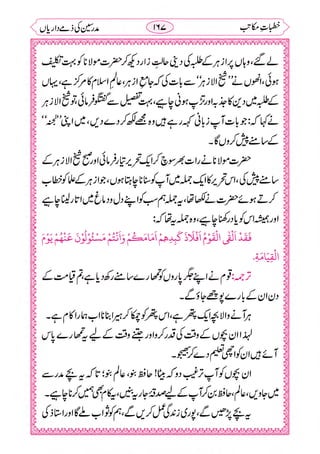 خطباتِ مکاتب ۱۶۷ مدرسین کی ذمے داریاں
لے گئے، وہاں پر ازہر کے طلبہ کی دینی حالتِ زار دیکھ کر حضرت مولانا کو بہت تکلیف
ہوئی، انھوں نے ”شیخ الازہر“ سے یہ بات کی کہ جامع ازہر، عالمِ اسلام کا مرکز ہے، یہاں
کے طلبہ میں دین کا جذبہ اور تڑپ ہونی چاہیے، بہت تفصیل سے گفتگو فرمائی، تو شیخ ازہر
نے کہا کہ: آپ جو بات زبانی کہہ رہے ہیں وہ مجھے لکھ کر دے دیں، میں اپنی ”لجنہ“
کے سامنے پیش کروں گا۔
حضرت مولانا نے رات بھر سوچ کر ایک تحریر تیار فرمائی اور صبح شیخ الازہر کے
سامنے پیش کی، اس تحریر کا ایک جملہ میں آپ کو سنانا چاہتا ہوں، جو ازہر کے علما کو خطاب
کرتے ہوئے حضرت نے لکھا تھا، یہ جملہ ہم سب کو اپنے دل و دماغ میں اتار لینا چاہیے
اور ہمیشہ اس کو یاد رکھنا چاہیے، وہ جملہ یہ تھا کہ:
فَقَدْ أَلْقَى الْقَوْمُ أَفْلَاذَ كَبِدِهِمْ أَمَامَكُمْ وَأَنْتُمْ مَسْئُوْلُوْنَ عَنْهُمْ يَوْمَ
الْقِيَامَةِ.
ترجمہ: قوم نے اپنے جگر پاروں کو تمھارے سامنے رکھ دیا ہے، تم قیامت کے
دن ان کے بارے پوچھے جاؤ گے۔
ہر آنے والا بچہ ایک پتھر ہے، اس پتھر کو چمکا کر ہیرا بنانا ہمارا اہم کام ہے۔
لہذا ان بچوں کے وقت کی قدر کرو اور جتنے وقت کے لیے یہ تمھارے پاس
آئے ہیں ان کو اچھی تعلیم دے کر بھیجو۔
ان بچوں کو آپ ترغیب دو کہ بیٹا! حافظ بنو، عالم بنو؛ تاکہ یہ بچے مدرسے
میں جاویں، عالم، حافظ بن کر آپ کے لیے صدقۂ جاریہ بنیں، یہ کام بھی ہمیں کرنا چاہیے۔
یہ بچے پڑھیں گے، پوری زندگی عمل کریں گے، ہم کو ثواب ملے گا اور استاذ کی